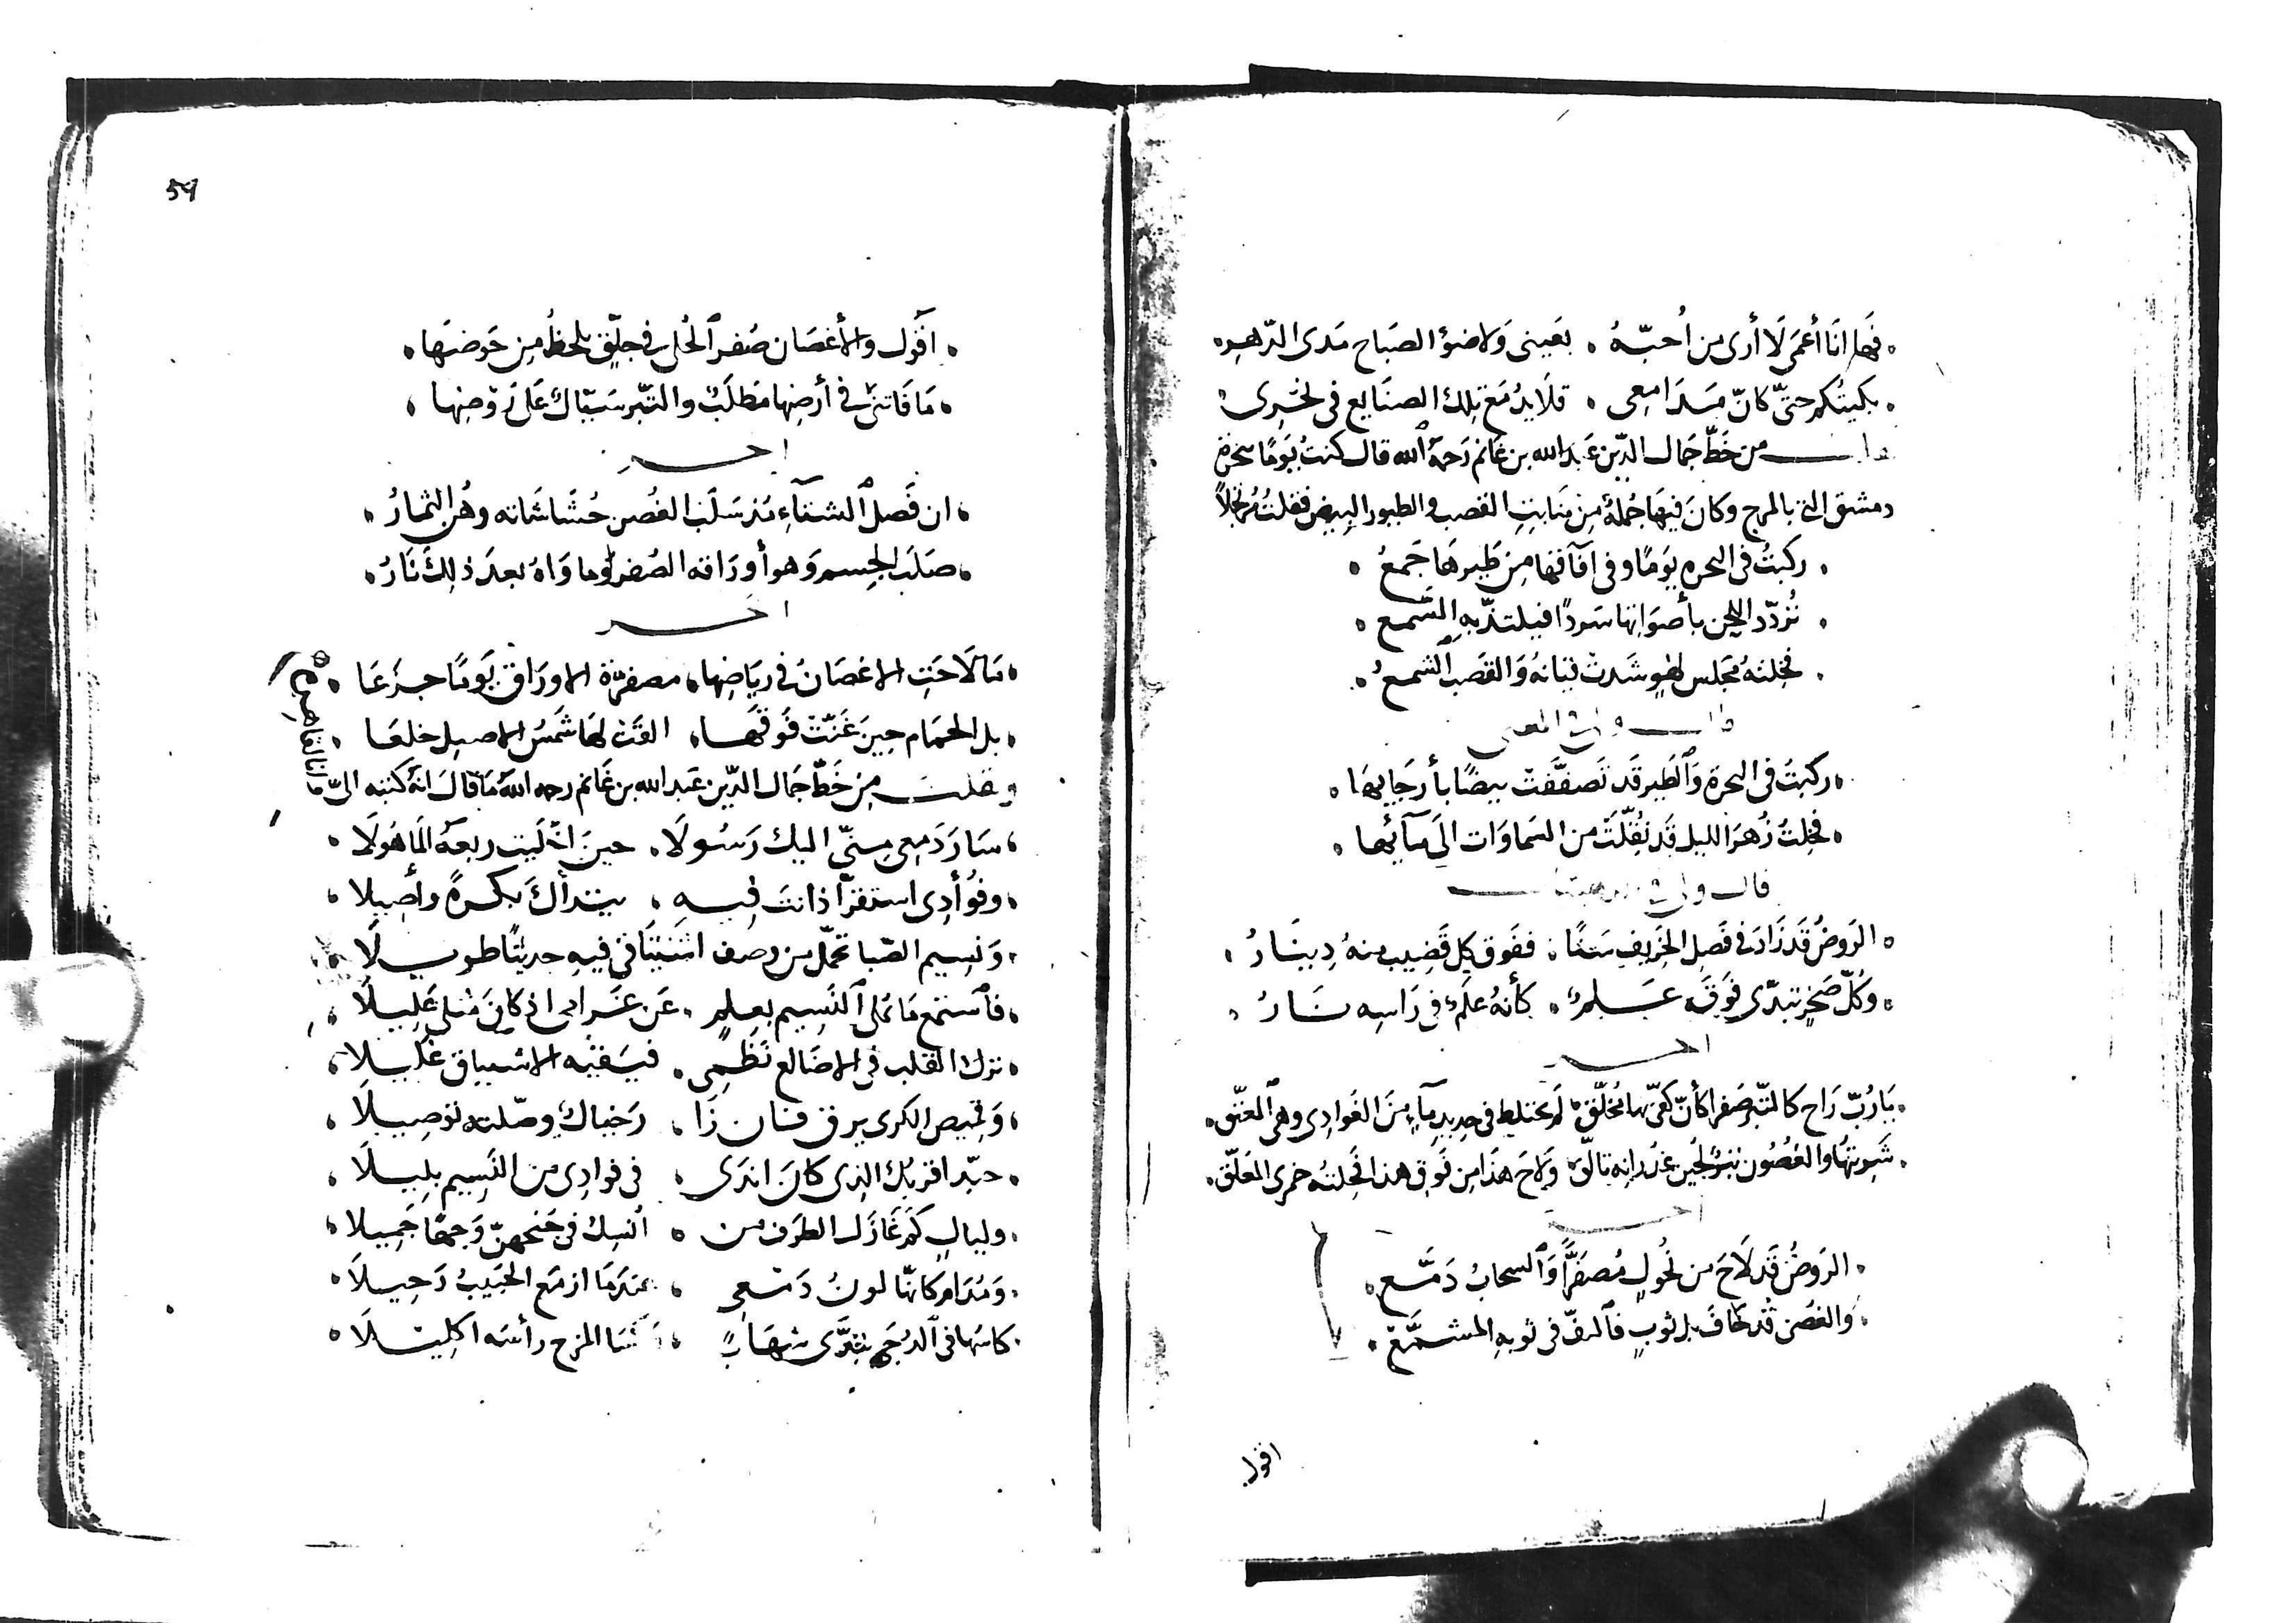 فَها انَا أعمَى لَا أرى من اُحبّهُ ۰ بعَينى وَلا ضوٴ الصبَاح مَدى الدّهرِ
بكيتُكم حتىّ كانّ مَدَامعِى ۰ قلَايدُ مَع تِلك الصنَايع فى نحْرِى
من خَطّ جَمال الدّين عَبد الله بن غانم رَحمهُ الله قال كنتُ يَومًا ببحرة
دمشق التى بالمرج وكانَ فيهَا جُملةٌ مِن مَنابتِ القصب والطيور البيض فقلتُ مُرتجلاً
ركبتُ فى البحره يَومًا وفى افآقها مِن طَيرهَا جَمعُ
تُردّد اللحن بأصوَاتها سَردًا فيلتذّ بهِ السَّمع
فخِلتهُ مَجلس لهوٍ شَدت قيَانهُ وَالقصَب الشمعُ
ركبتَ فى البحرَة وَالطَير قَد تَصفّفَت بيضًا بأرجَايهَا
فخِلتُ زُهرَ الليل قَد نُقّلَتْ من السَماوَات الَى مَآئها
قال
الرَوضُ قَد زَادَ فى فَصلِ الخَريفِ سَنًا ۰ ففَوق كل قَضِيب منهُ دِينَارُ
وَكُلّ صَخرٍ تبَدّى فَوقَه عَلمٌ ۰ كأنهُ علَم فى رَاسِه نَارُ
اخر
يَا رُبّ رَاح كالتبر صَفرا كأنّ كفىّ بها مُخلّقْ لَم تختلِط فى جديدِ مآءٍ مِنَ الغَوادِى وهى المعتّق
شَربتهُا والغصُون تبرٌ لجُين غُدرانه تالّقْ وَلاحَ هَذا مِن فَوق هذا فخِلتهُ خمرى المُعَلّق
اخر
الرَوضُ قَد لاحَ من نحُولٍ مُصفَرًّا وَالسحابُ دَمَّع
وَالغصُن قَد خافَ بل ثوبٍ فالتفّ فى ثوبهِ المشمَّعْ
اقول
59
اقوَل وَالأغصَان صُفر الحُلى فى جلّقٍ يلحظُ مِن حَوضهَا
مَا فَاتنىْ فى أرضِها مَطلَبٌ والتّبر سَبّاكٌ عَلَى رَوْضِها
اخر
ان فَصل الشتآءِ مُذ سَلَب الغُصن حُشَاشَاته وهُن الثمارُ
صَلَب الجِسم وَهو أورَاقه الصُفر وما وَاهُ بعدَ ذلِكَ نَارُ
اخر
مَا لَاحَتِ الاغصَانُ فى ريَاضِها ۰ مصفرّة الاورَاق يَومًا جزَعَا
بل الحمَام حِينَ غَنّتْ فَوقَهَا ۰ القَتْ لهَا شَمسُ الاصِيل خلعَا
ونقلت مِن خَطّ جَمال الدّين عَبد الله بن غَانم رحمه الله مَا قالَ انهُ كتبه الىّ
وانا بالقاهرة
سَارَ دَمعِى مِنىّ اليك رَسُولَا ۰ حينَ اخْلَيت ربعهُ المَاهُولَا
وفؤادِى استفزّ اذ انتَ فِيهِ ۰ بكرةً وأصِيلا
وَنسِيم الصّبا تحَمّل من وصف اشتيَاقى فيهِ حديثًا طويلَا
فاستَمع مَا تملى النَسِيم بعِلمٍ ۰ عَن غَرامى اذ كانَ مثلى عَليلًا
ترك القلب فى الاضَالع نَظْمِى ۰ فيَسَقيه الاشتياق غَليلًا
وَقميص الكرى يمزق فان زَا ۰ رَخيَاكٌ وصّلته تَوصِيلًا
حبّذا قربُك الذى كانَ اندَى ۰ فى فوادِى من النَسِيم بلِيلًا
وليالٍ كَم غَازَل الطَرف من ۰ اُنسِك فى جنحهنّ وَجهًا جَمِيلا
وَمُدَام كانّهَا لونُ دَمْعِى ۰ عندَمَا ازمَع الحَبيبُ رَحِيلَا
كاسُها فى الدُجَى تبَدَّى شهَابً ۰ المزج رأسَه اكليلَا